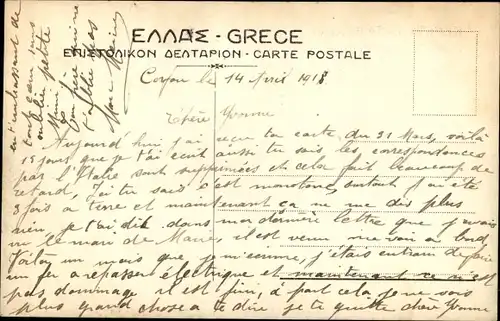 ΕΛΛΑΣ - GRECE
ΕΠΙΣΤΟΛΙΚΟΝ ΔΕΛΤΑΡΙΟΝ - CARTE POSTALE
Corfou le 14 Avril 1918
Chère Yvonne
Aujourd'hui j'ai reçu ta carte du 31 Mars, voilà
15 jours que je t'ai écrit aussi tu sais les correspondances
par l'Italie sont supprimées et cela fait beaucoup de
retard, Ici tu sais c'est monotone, surtout j'ai été
3 fois a terre et maintenant ça ne me dis plus
rien, je t'ai dit dans ma dernière lettre que j'avais
vu le mari de Marie, il est venu me voir a bord,
Voilà un mois que je m'ennuie, j'étais entrain de faire
un fer a repasser électrique et maintenant ce n'est
pas dommage il est fini, à part cela je ne vois
plus grand chose a te dire je te quitte chère Yvonne
en t'embrassant de
tout cœur
petite
Ton